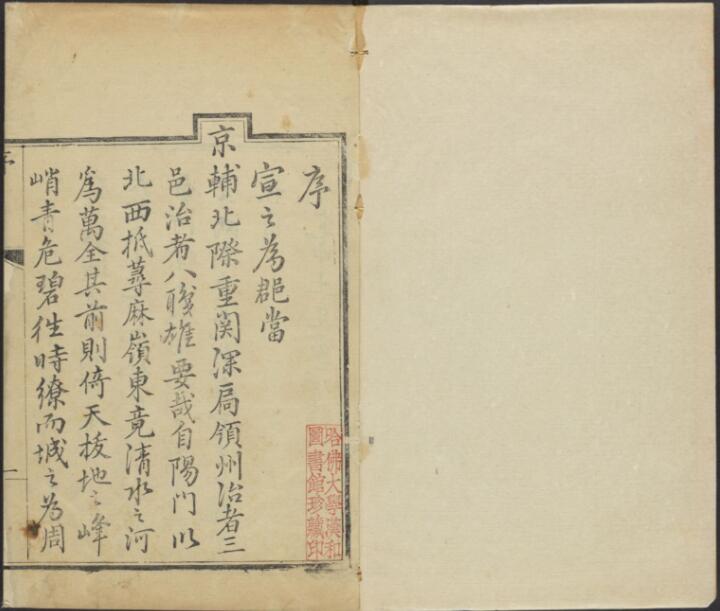 序
宣之為郡當
京輔北際重関深扃領州治者三
邑治者八職雄要哉自陽門以
北西抵蕁麻嶺東竟清水之河
為萬全其前則倚天拔地之峰
峭青危碧往時繚而城之為周
哈佛大學漢和
圖書館珍藏印